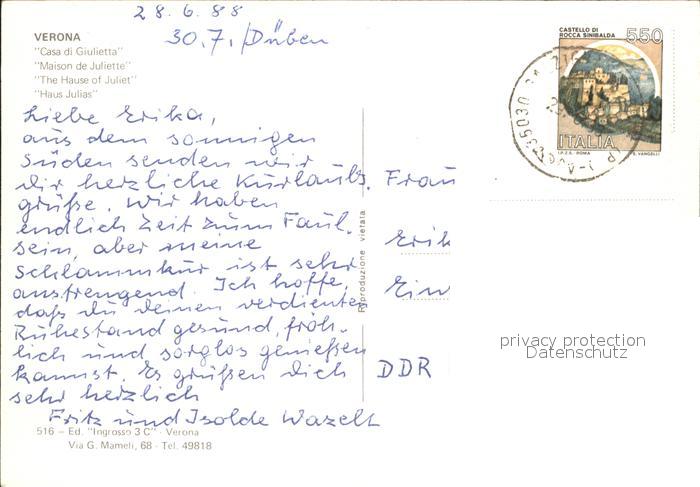 28.6.88
30.7./Düben
VERONA
"Casa di Giulietta"
"Maison de Juliette"
"The Hause of Juliet"
"Haus Julias"
CASTELLO DI
ROCCA SINIBALDA
550
ITALIA
I.P.Z.S. ROMA
E. VANGELLI
35030
Liebe Erika,
aus dem sonnigen
Süden senden wir
dir herzliche Kurlaubs.
grüße. Wir haben
endlich Zeit zum Faul.
sein, aber meine
Schlammkur ist sehr
anstrengend. Ich hoffe,
daß du deinen verdienten
Ruhestand gesund, fröh-
lich und sorglos genießen
kannst. Es grüßen dich
sehr herzlich
Fritz und Isolde Wazelt
Riproduzione vietata
Frau
Erik
Ein
DDR
privacy protection
Datenschutz
516 – Ed. "Ingrosso 3 C" - Verona
Via G. Mameli, 68 - Tel. 49818